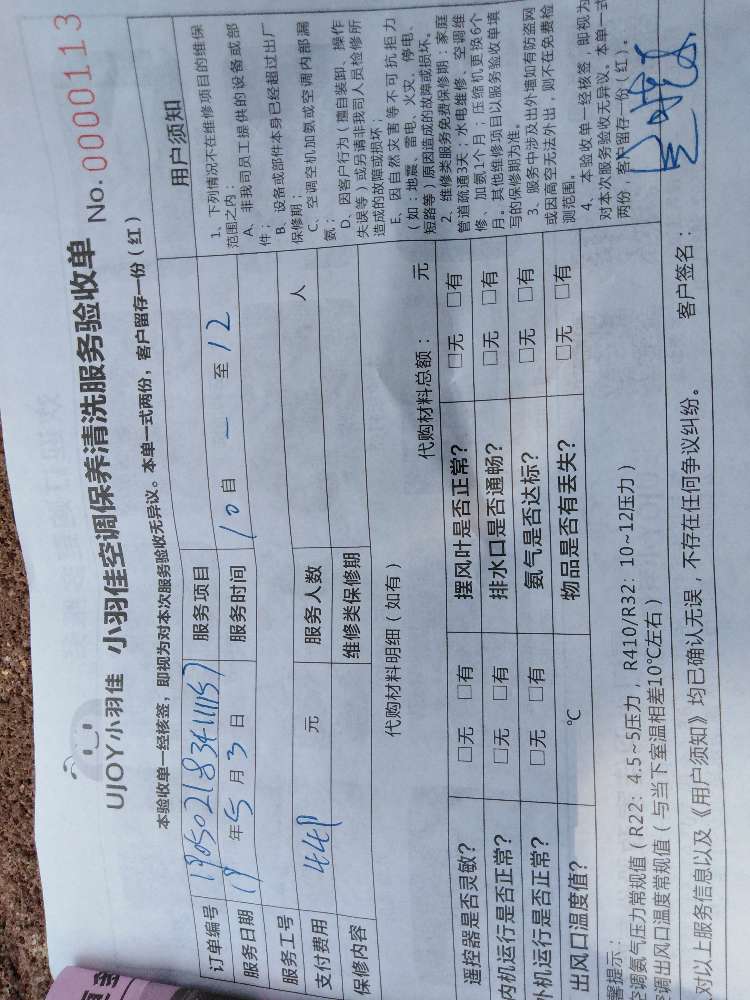 UJOY小羽佳 小羽佳空调保养清洗服务验收单 No. 0000113
本验收单一经核签，即视为对本次服务验收无异议。本单一式两份，客户留存一份（红）
订单编号 服务项目
服务日期 19 年 5 月 3 日 服务时间 10 自 一 至 12
服务工号
支付费用 元 服务人数 人
保修内容 维修类保修期
代购材料明细（如有） 代购材料总额： 元
遥控器是否灵敏？ □无 □有 摆风叶是否正常？ □无 □有
内机运行是否正常？ □无 □有 排水口是否通畅？ □无 □有
机运行是否正常？ □无 □有 氨气是否达标？ □无 □有
出风口温度值？ ℃ 物品是否有丢失？ □无 □有
用户须知
1、下列情况不在维修项目的维保
范围之内：
A、非我司员工提供的设备或部
件；
B、设备或部件本身已经超过出厂
保修期；
C、空调空机加氨或空调内部漏
氨；
D、因客户行为（擅自装卸、操作
失误等）或另请非我司人员检修所
造成的故障或损坏；
E、因自然灾害等不可抗拒力
（如：地震、雷电、火灾、停电、
短路等）原因造成的故障或损坏。
2、维修类服务免费保修期：家庭
管道疏通3天；水电维修、空调维
修、加氨1个月；压缩机更换6个
月。其他维修项目以服务验收单填
写的保修期为准。
3、服务中涉及出外墙如有防盗网
或因高空无法外出，则不在免费检
测范围。
4、本验收单一经核签，即视为
对本次服务验收无异议。本单一式
两份，客户留存一份（红）。
提示：
调氨气压力常规值（R22：4.5~5压力，R410/R32：10~12压力）
调出风口温度常规值（与当下室温相差10℃左右）
对以上服务信息以及《用户须知》均已确认无误，不存在任何争议纠纷。 客户签名：